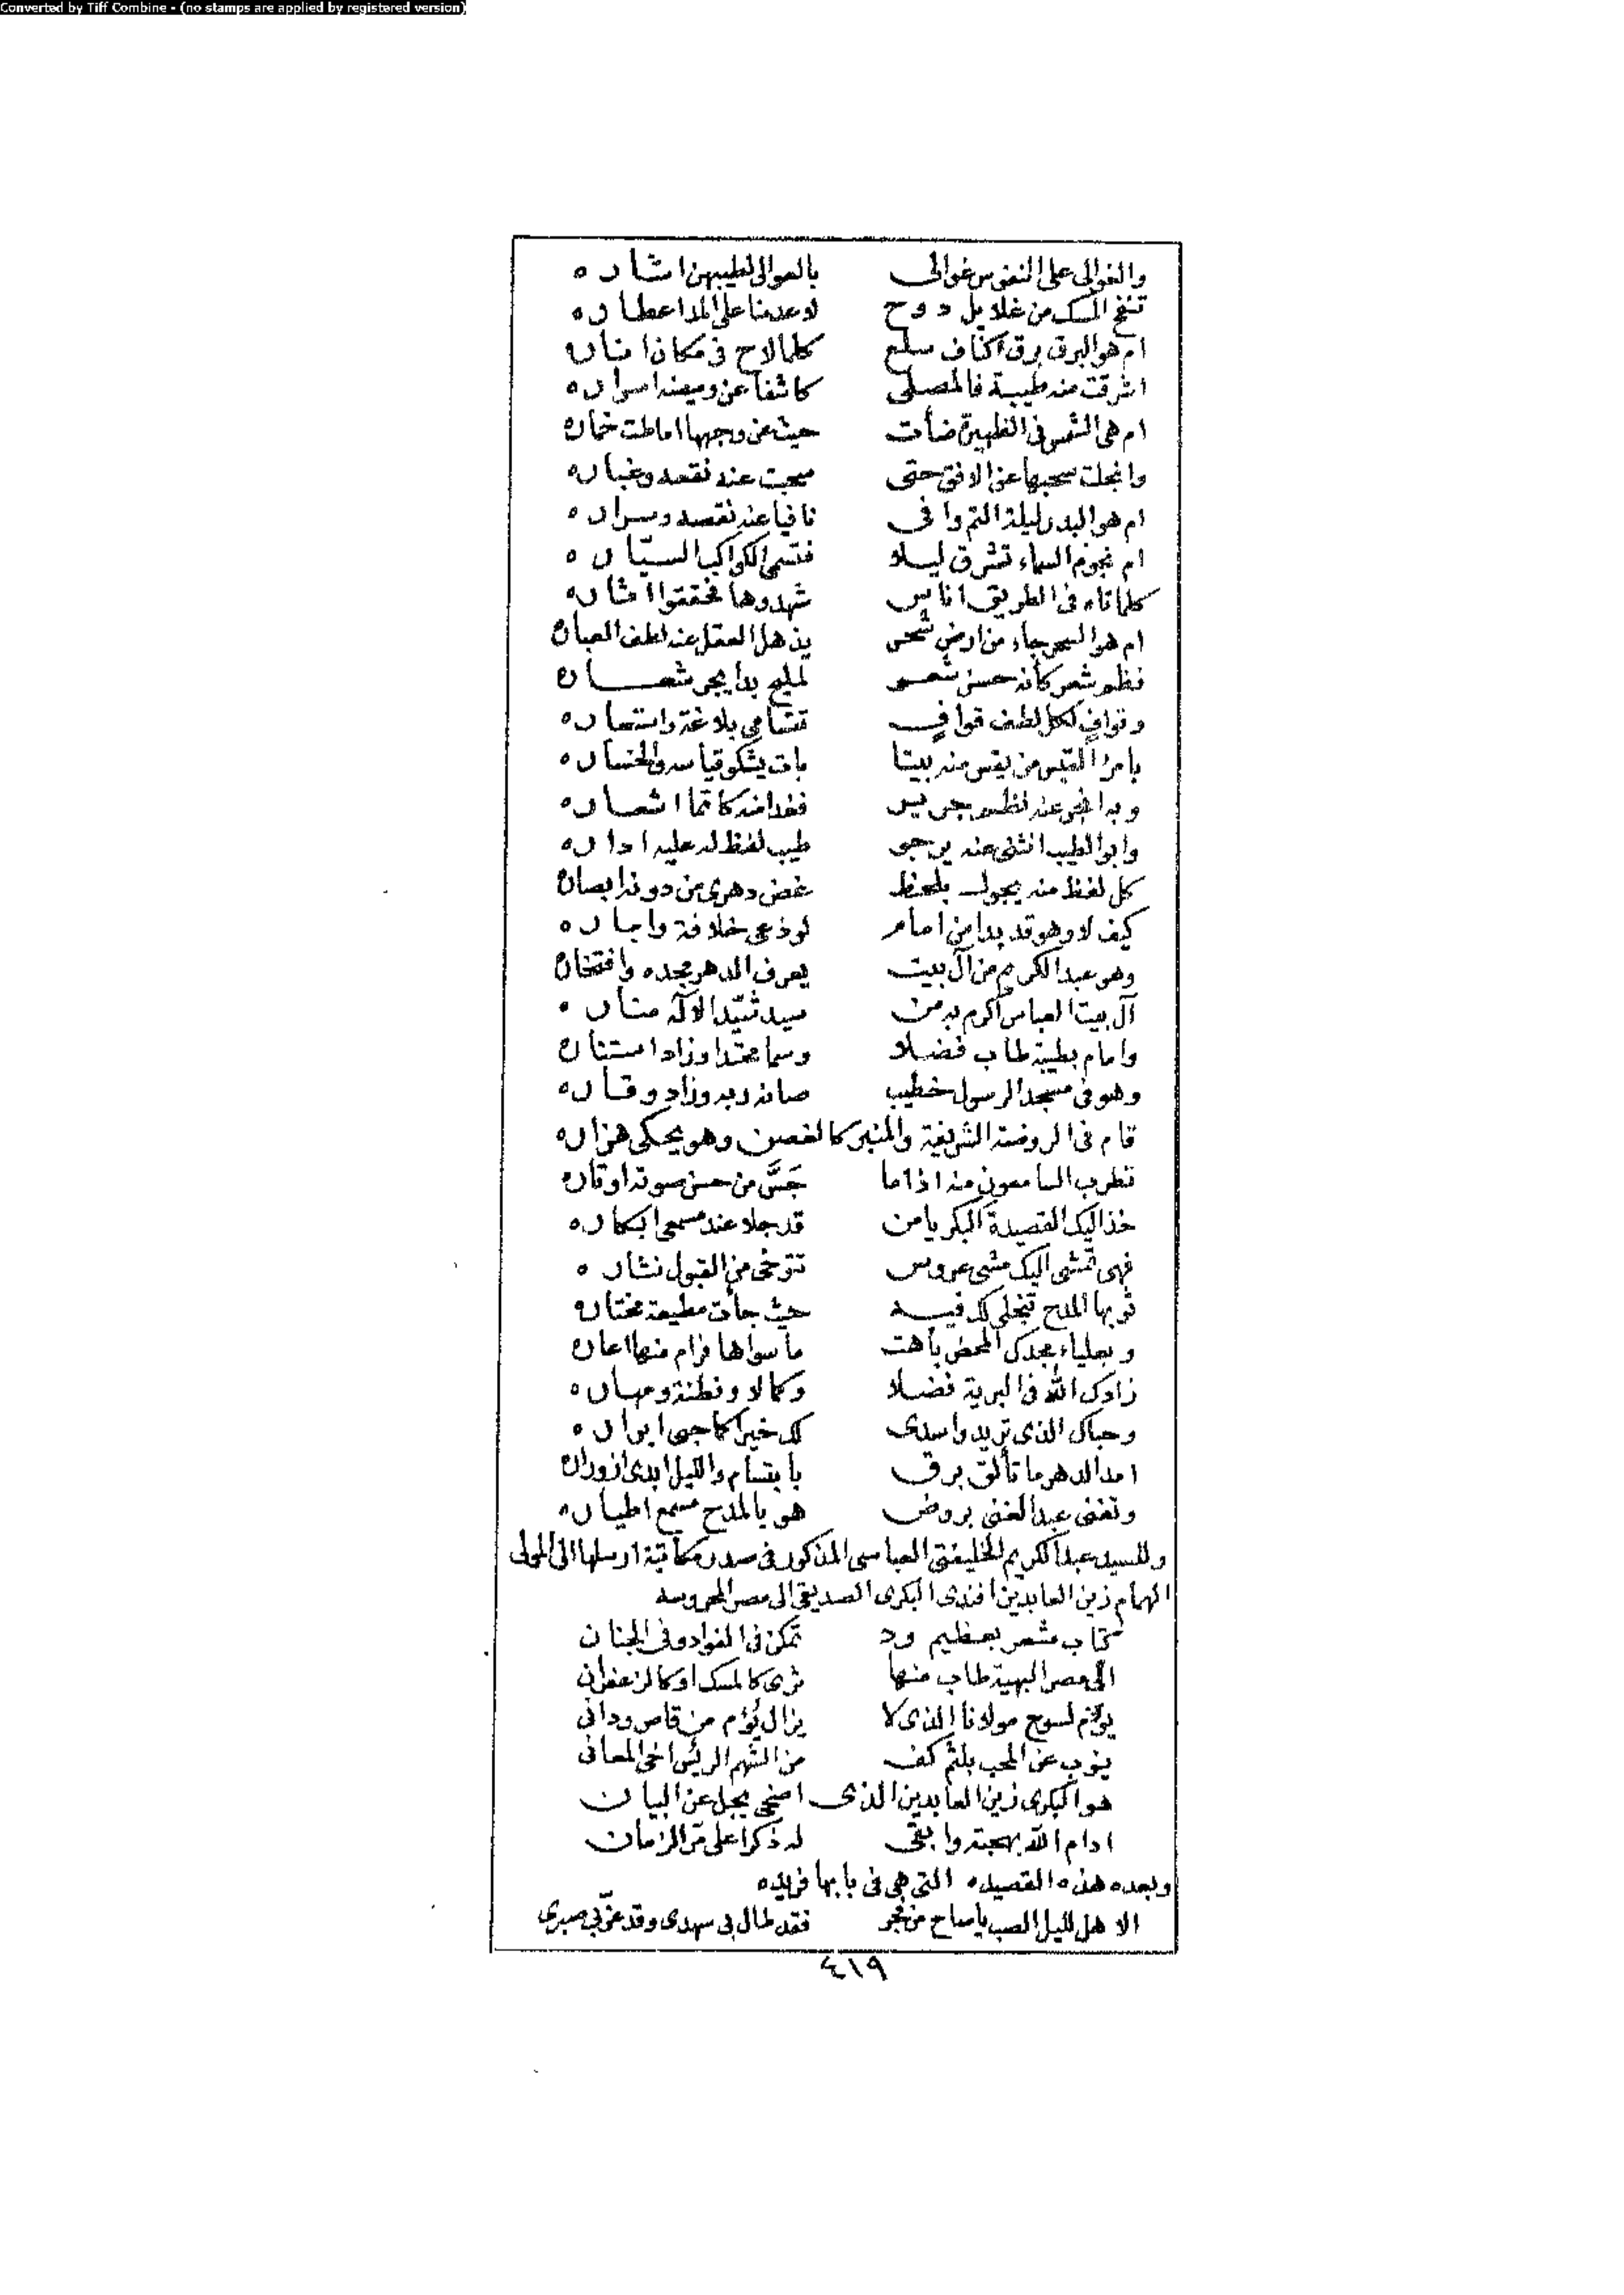 Converted by Tiff Combine - (no stamps are applied by registered version)
والغوالي على النفوس غوالى بالعوالى لطيبهن اشاره
تنفخ المسك من غلايل دوح لا عدمنا على المدا عطاره
ام هو البرق برق اكناف سلع كلما لاح فى مكان اناره
اشرقت منه طيبة فالمصلى كاشفا عن وميضه اسراره
ام هى الشمس فى الظهيرة ضأت حيث عن وجهها اماطت خماره
وانجلت سحبها عن الافق حتى سحبت عنه نقعه وغباره
ام هو البدر ليلة التم وافى نافيا عنه نقصه وسراره
ام نجوم السماء تشرق ليلا فتسمى الكواكب السيّاره
كلما تاه فى الطريق اناس شهدوها فحققوا اشاره
ام هو السحر جاء من ارض شحر يذهل العقل عند لطف العباره
نظم شعر كأنه حسن شعر لمليح بدا يجر شعاره
وقوافٍ لكل لطف قوافٍ تتسامى بلاغة واستعاره
بامرا القيس من يقس منه بيتا بات يشكو قياسه والخساره
وبه انجر عند نظم جرير فغدا منه كاتما اشعاره
وابو الطيب انثنى عنه يرجو طيب لفظ له عليه اداره
كل لفظ منه يجول بلحظ غض دهرى من دونه ابصاره
كيف لا وهو قد بدا من امام لوذعى خلافة واجاره
وهو عبد الكريم من آل بيت يعرف الدهر مجده وافتخاره
آل بيت العباس اكرم به من سيد شيّد الاله مناره
وامام بطيبة طاب فضلا وسما محتدا وزاد استناره
وهو فى مسجد الرسول خطيب صانه ربه وزاد وقاره
قام فى الروضة الشريفة والمنبر كالغصن وهو يحكى هزاره
تطرب السامعون منه اذا ما جَسَّ من حسن صوته اوتاره
خذ اليك القصيدة البكر يا من قد جلا عند مسمعى ابكاره
فهى تمشى اليك مشى عروس تتوخى من القبول نثاره
ثوبها المدح تنجلى لك فيه حيث جأت مطيعة مختاره
وبعلياء مجدك المحض باهت ما سواها فرام منها اعاره
زادك الله فى البرية فضلا وكمالا وفطنة ومهاره
وحباك الذى تريد واسدى لك خيرا كما جرى ابراره
امد الدهر ما تألق برق بابتسام والليل ابدى ازوراره
وتغنى عبد الغنى بروض هو بالمدح مسمع اطياره
وللسيد عبد الكريم الخليفتى العباسى المذكور فى صدر مكاتبة ارسلها الى المولى
الهمام زين العابدين افندى البكرى الصديقى الى مصر المحروسه
كتاب مشعر بعظيم ود تمكن فى الفواد وفى الجنان
الى مصر البهية طاب منها ثرى كالمسك او كالزعفران
يؤم لسوح مولانا الذى لا يزال يُؤم من قاص ودانى
ينوب عن المحب بلثم كف من الشهم الرئس اخى المعانى
هو البكرى زين العابدين الذى اضحى يجل عن البيان
ادام الله بهجته وابقى له ذكرا على مرّ الزمان
وبعده هذه القصيده التى هى فى بابها فريده
الا هل لليل الصب يا صاح من فجر فقد طال بى سهدى وقد عزّ بى صبرى
٤١٩